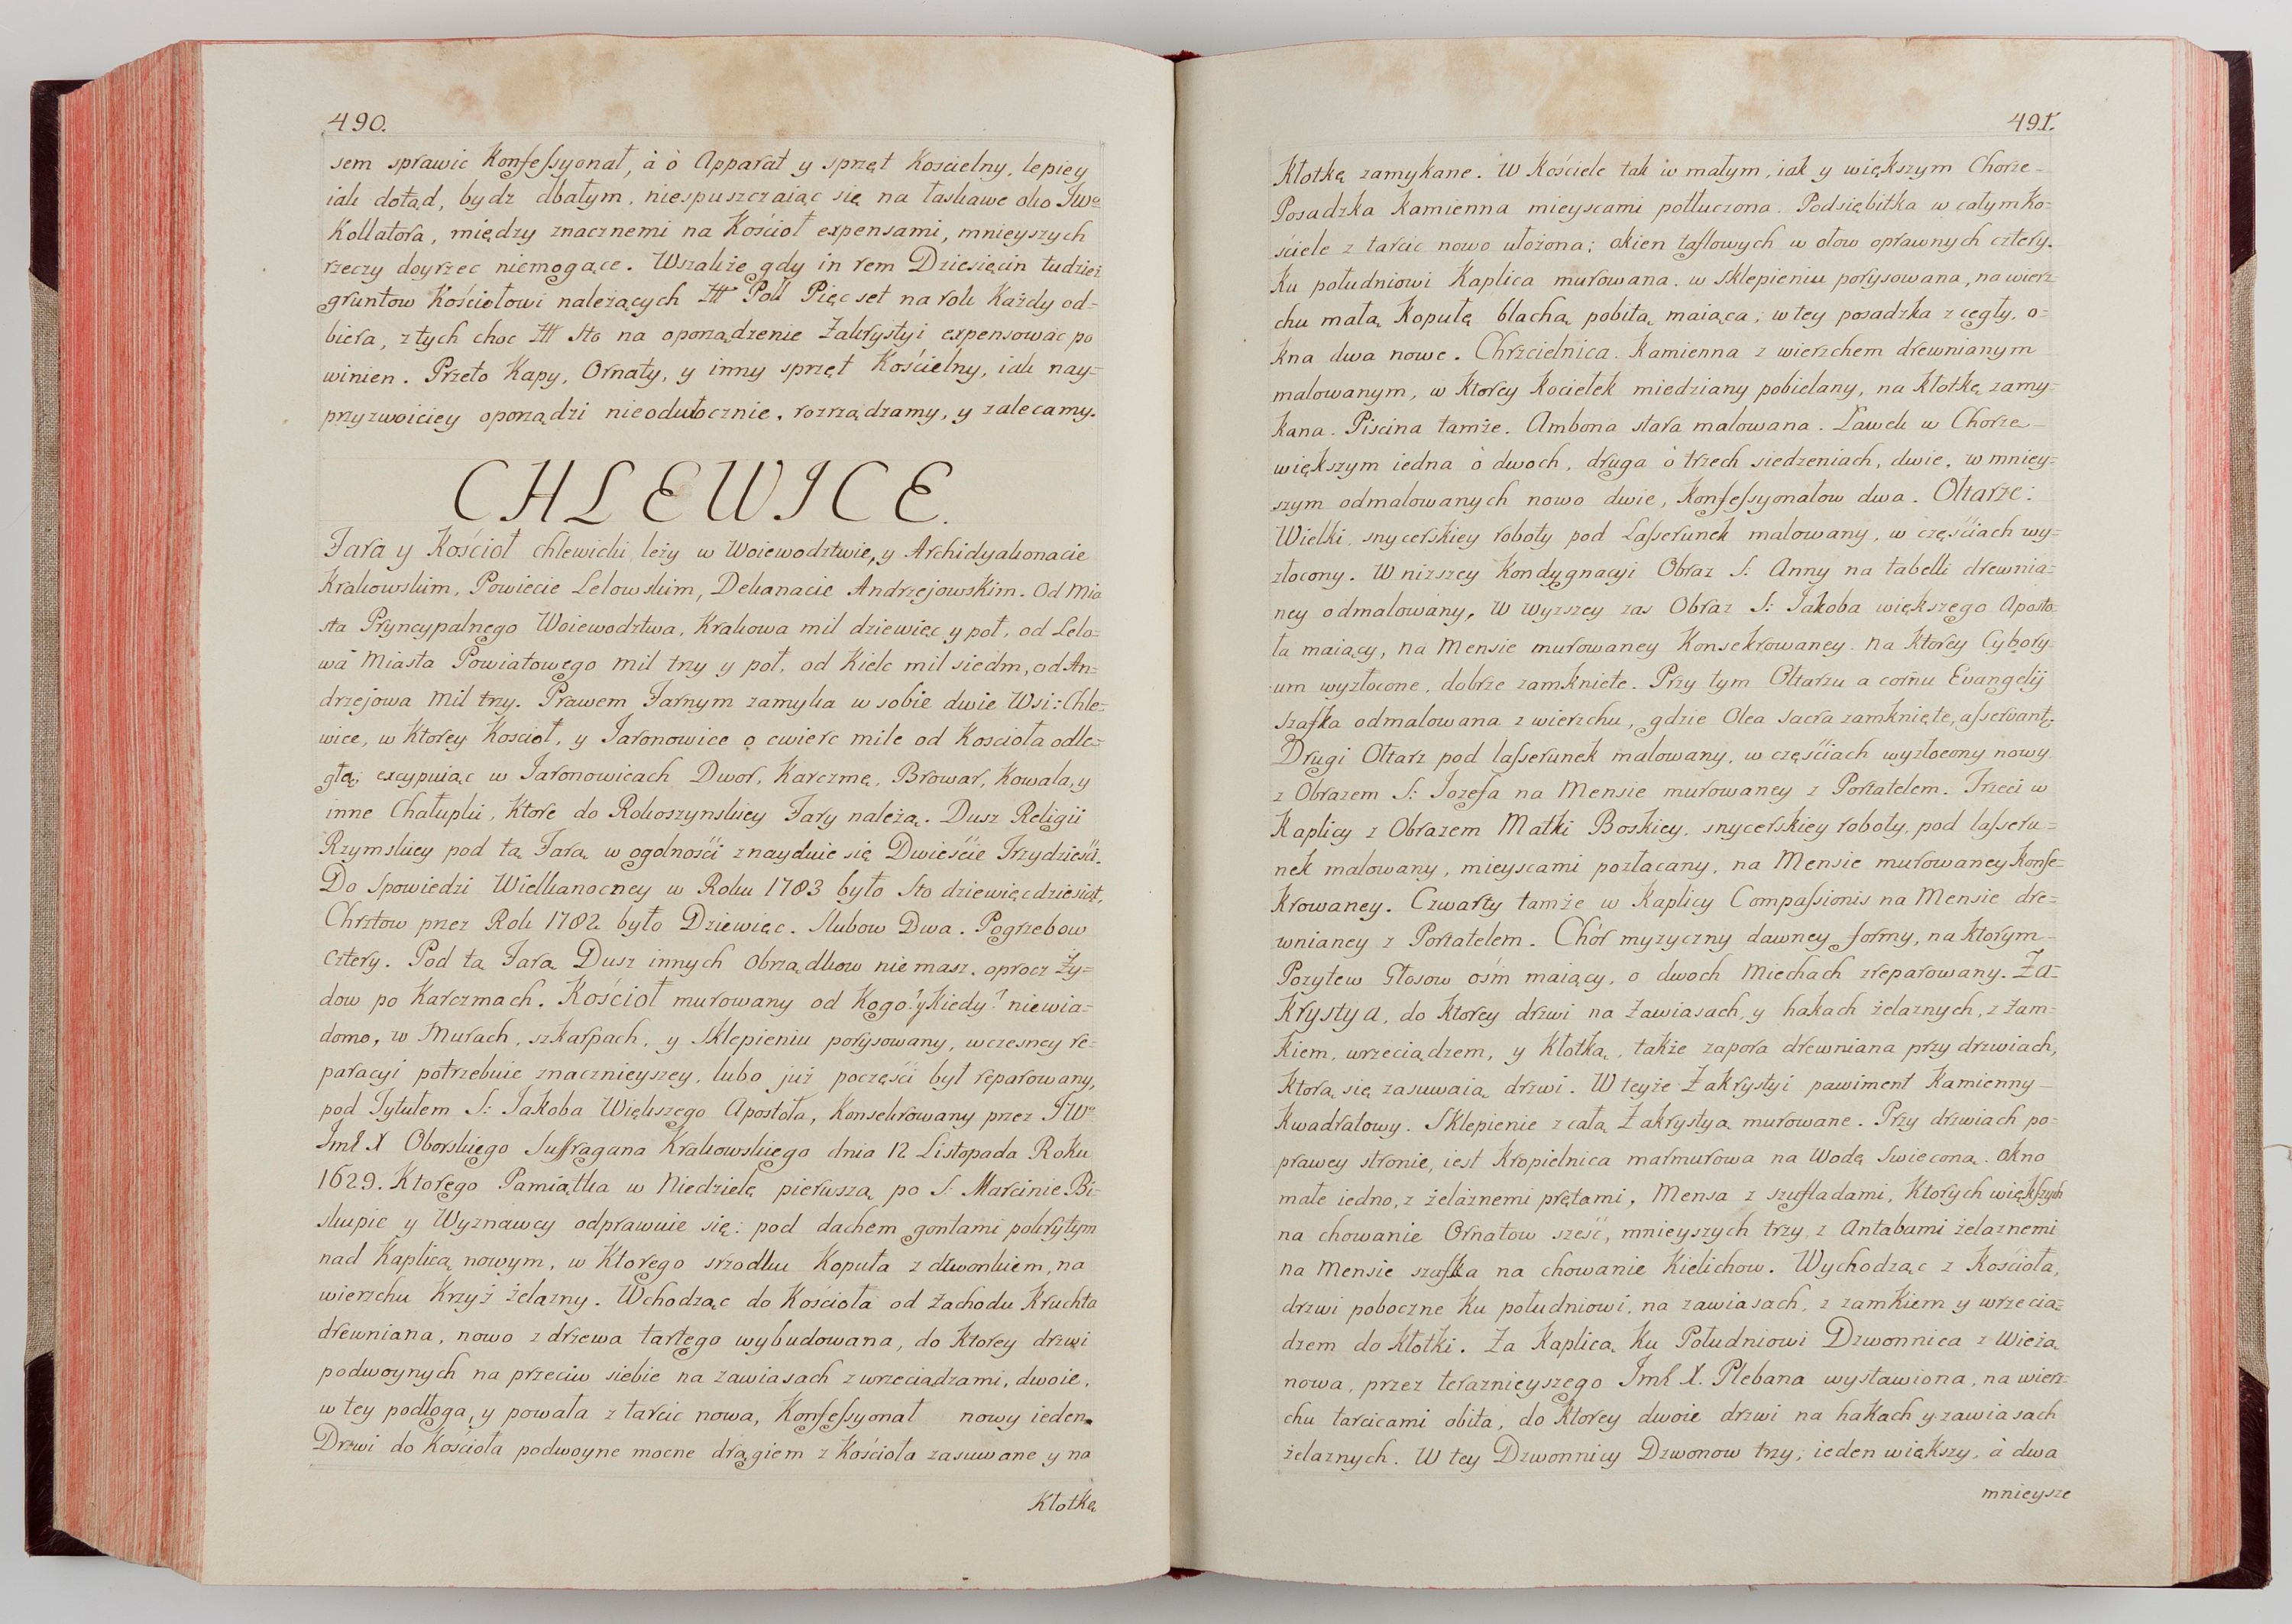 490.
sem sprawic Konfessyonał, à ò Apparat y sprzęt Koscielny, lepiey
iak dotąd, bydz dbałym, niespuszczaiąc się na łaskawe oko JWo
Kollatora, między znacznemi na Kościoł expensami, mnieyszych
rzeczy doyrzec niemogące. Wszakże gdy in rem Dziesięcin tudzież
gruntow Kościołowi należących Poll Pięc set na rok Każdy od=
biera, z tych choc sto na oporządzenie Zakrystyi expensowac po
winien. Przeto Kapy, Ornaty, y inny sprzęt Kościelny, iak nay=
przyzwoiciey oporządzi nieodwłocznie, rozrządzamy, y zalecamy.
CHLEWICE.
Fara y Kościoł chlewicki leży w Woiewodztwie, y Archidyakonacie
Krakowskim, Powiecie Lelowskim, Dekanacie Andrzejowskim. Od Mia
sta Pryncypalnego Woiewodztwa, Krakowa mil dziewięc y poł, od Lelo=
wa Miasta Powiatowego mil trzy y poł, od Kielc mil siedm, od An=
drzejowa Mil trzy. Prawem Farnym zamyka w sobie dwie Wsi: Chle=
wice, w Ktorey Koscioł, y Jaronowice o cwierc mile od Kościoła odle=
głą; excypuiąc w Jaronowicach Dwor, Karczmę, Browar, Kowala, y
inne Chałupki, Ktore do Rokoszynskiey Fary należą. Dusz Religii
Rzymskiey pod tą Farą w ogolności znayduie się Dwieście Trzydzieści.
Do Spowiedzi Wielkanocney w Roku 1783 było Sto dziewięcdziesiąt,
Chrztow przez Rok 1782 było Dziewięc. Slubow Dwa. Pogrzebow
cztery. Pod tą Farą Dusz innych Obrządkow niemasz, oprocz Ży=
dow po Karczmach. Kościoł murowany od Kogo? y Kiedy? niewia=
domo, w Murach, szkarpach, y Sklepieniu porysowany, wczesney re=
paracyi potrzebuie znacznieyszey, lubo już poczęści był reparowany,
pod Tytułem S: Jakoba Większego Apostoła, Konsekrowany przez JWo
Jmć X Oborskiego Suffragana Krakowskiego dnia 12 Listopada Roku
1629. Ktorego Pamiątka w Niedzielę pierwszą po S: Marcinie Bi=
skupie y Wyznawcy odprawuie się: pod dachem gontami pokrytym
nad Kaplicą nowym, w Ktorego srzodku Kopuła z dzwonkiem, na
wierzchu Krzyż żelazny. Wchodząc do Kościoła od Zachodu Kruchta
drewniana, nowo z drzewa tartego wybudowana, do Ktorey drzwi
podwoynych na przeciw siebie na zawiasach z wrzeciądzami, dwoie,
w tey podłoga, y powała z tarcic nowa, Konfessyonał nowy ieden.
Drzwi do Kościoła podwoyne mocne drągiem z Kościoła zasuwane y na
Kłotkę
491.
Kłotkę zamykane. W Kościele tak w małym, iak y większym Chorze
Posadzka Kamienna mieyscami potłuczona. Podsiębitka w całym Ko=
ściele z tarcic nowo ułożona; okien taflowych w ołow oprawnych cztery.
Ku południowi Kaplica murowana, w Sklepieniu porysowana, na wierz=
chu małą Kopułę blachą pobitą maiąca; w tey posadzka z cegły, o=
kna dwa nowe. Chrzcielnica Kamienna z wierzchem drewnianym
malowanym, w Ktorey Kociełek miedziany pobielany, na Kłotkę zamy=
kana. Piscina tamże. Ambona stara malowana. Ławek w Chorze
większym iedna ò dwoch, druga ò trzech siedzeniach, dwie, w mniey=
szym odmalowanych nowo dwie, Konfessyonałow dwa. Ołtarze:
Wielki snycerskiey roboty pod Lasserunek malowany, w częściach wy=
złocony. W niższey Kondygnacyi Obraz S: Anny na tabelli drewnia=
ney odmalowany, w wyzszey zas Obraz S: Jakoba większego Aposto=
ła maiący, na Mensie murowaney Konsekrowaney na Ktorey Cybory=
um wyzłocone, dobrze zamkniete. Przy tym Ołtarzu a cornu Evangelij
szafka odmalowana z wierzchu, gdzie Olea sacra zamknięte, asservant.
Drugi Ołtarz pod lasserunek malowany, w częściach wyzłocony nowy
z Obrazem S: Jozefa na Mensie murowaney z Portatelem. Trzeci w
Kaplicy z Obrazem Matki Boskiey, snycerskiey roboty, pod lasseru=
nek malowany, mieyscami pozłacany, na Mensie murowaney Konse=
Krowaney. Czwarty tamże w Kaplicy Compassionis na Mensie dre=
wnianey z Portatelem. Chór myzyczny dawney formy, na Ktorym
Pozytew Głosow ośm maiący, o dwoch Miechach zreparowany. Za=
krystya, do Ktorey drzwi na Zawiasach, y hakach żelaznych, z Zam=
kiem, wrzeciądzem, y Kłotką, także zapora drewniana przy drzwiach,
Ktorą się zasuwaią drzwi. W teyże Zakrystyi pawiment Kamienny
Kwadratowy. Sklepienie z całą Zakrystyą murowane. Przy drzwiach po
prawey stronie, iest Kropielnica marmurowa na Wodę Swięconą. Okno
małe iedno, z żelaznemi prętami, Mensa z szufladami, Ktorych większych
na chowanie Ornatow sześć, mnieyszych trzy, z Antabami żelaznemi
na Mensie szafka na chowanie Kielichow. Wychodząc z Kościoła,
drzwi poboczne Ku południowi, na zawiasach, z zamkiem y wrzecią=
dzem do Kłotki. Za Kaplicą Ku Południowi Dzwonnica z Wieżą
nowa, przez teraznieyszego Jmć X. Plebana wystawiona, na wierz=
chu tarcicami obita, do Ktorey dwoie drzwi na hakach y zawiasach
żelaznych. W tey Dzwonnicy Dzwonow trzy, ieden większy, à dwa
mnieysze